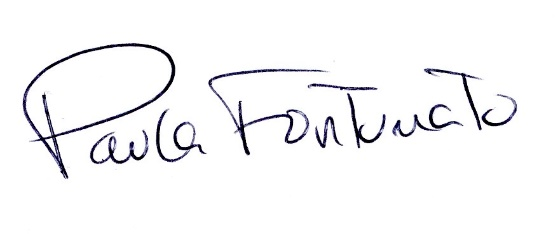 Paula Fortunato